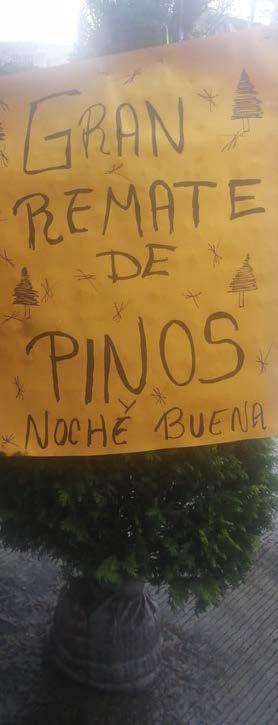 GRAN
REMATE
DE
PINOS
Y
NOCHE BUENA